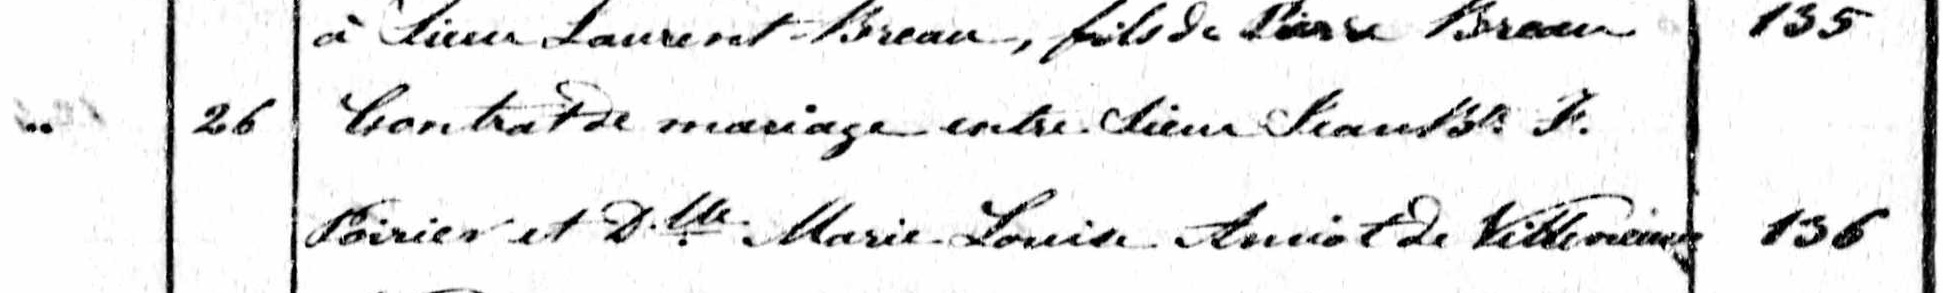 à Sieur Laurent Breau, fils de Pierre Breau 135
" 26 Contrat de mariage entre Sieur Jean Bte F.
Poirier et D.lle Marie Louise Amiot de Villeneuve 136